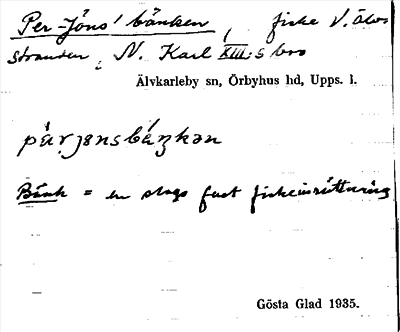 Per-Jöns' bänken, fiske V. älvs
stranden, N. Karl XIII:s bro
Älvkarleby sn, Örbyhus hd, Upps. l.
pär jønsbáŋkan
Bänk = en slags fast fiskeinrättning
Gösta Glad 1935.